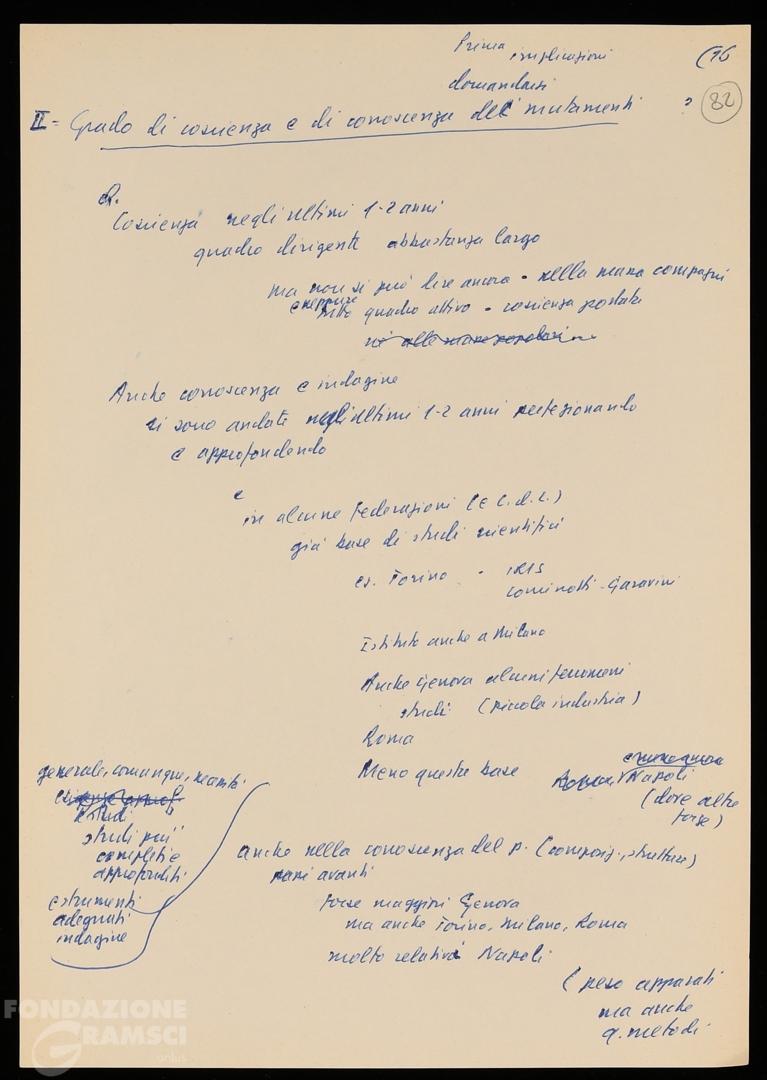 Prima implicazioni
domandarsi
(16
82
II = Grado di coscienza e di conoscenza dei mutamenti ?
a.
Coscienza negli ultimi 1-2 anni
quadro dirigente abbastanza largo
ma non si può dire ancora - nella massa compagni
e neppure nello quadro attivo - coscienza portata
né alle masse popolari
Anche conoscenza e indagine
si sono andate negli ultimi 1-2 anni perfezionando
e approfondendo
e
in alcune Federazioni (e C.d.L.)
già base di studi scientifici
es. Torino - IRIS
Cominotti - Garavini
Istituto anche a Milano
Anche Genova alcuni fenomeni
studi (piccola industria)
Roma
Meno questa base Napoli
(dove altre
forse)
generale, comunque, necessità
studi
studi più
completi e
approfonditi
e strumenti
adeguati
indagine
anche nella conoscenza del p. (composiz., strutture)
passi avanti
forse maggiori Genova
ma anche Torino, Milano, Roma
molto relativi Napoli
(peso apparati
ma anche
q. metodi
FONDAZIONE
GRAMSCI
onlus